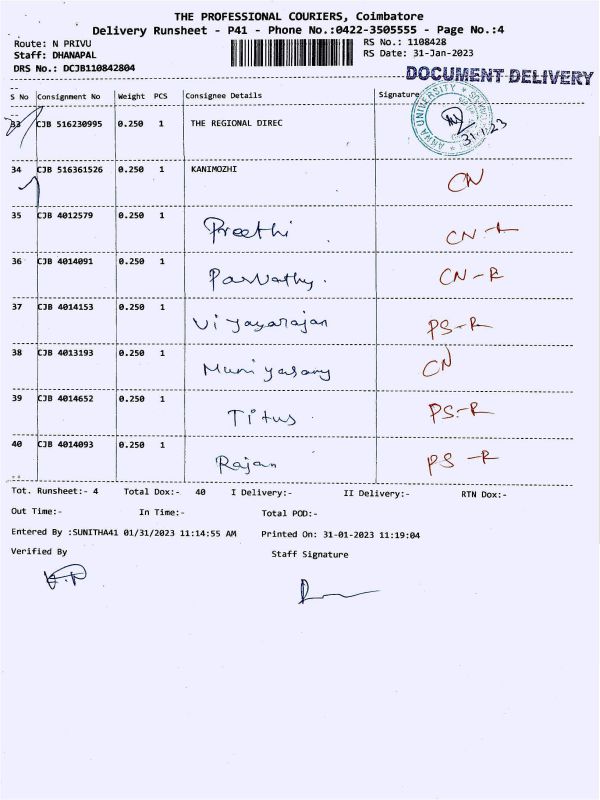 THE PROFESSIONAL COURIERS, Coimbatore
Delivery Runsheet - P41 - Phone No.:0422-3505555 - Page No.:4
Route: N PRIVU RS No.: 1108428
Staff: DHANAPAL RS Date: 31-Jan-2023
DRS No.: DCJB110842804
DOCUMENT DELIVERY
S No Consignment No Weight PCS Consignee Details Signature
33 CJB 516230995 0.250 1 THE REGIONAL DIREC
ANNA UNIVERSITY
31.1.23
34 CJB 516361526 0.250 1 KANIMOZHI CN
35 CJB 4012579 0.250 1 Preethi CN-R
36 CJB 4014091 0.250 1 Parvathy. CN-R
37 CJB 4014153 0.250 1 Vijayarajan PS-R
38 CJB 4013193 0.250 1 Muniyasamy CN
39 CJB 4014652 0.250 1 Titus. PS-R
40 CJB 4014093 0.250 1 Rajan PS-R
Tot. Runsheet:- 4 Total Dox:- 40 I Delivery:- II Delivery:- RTN Dox:-
Out Time:- In Time:- Total POD:-
Entered By :SUNITHA41 01/31/2023 11:14:55 AM Printed On: 31-01-2023 11:19:04
Verified By Staff Signature